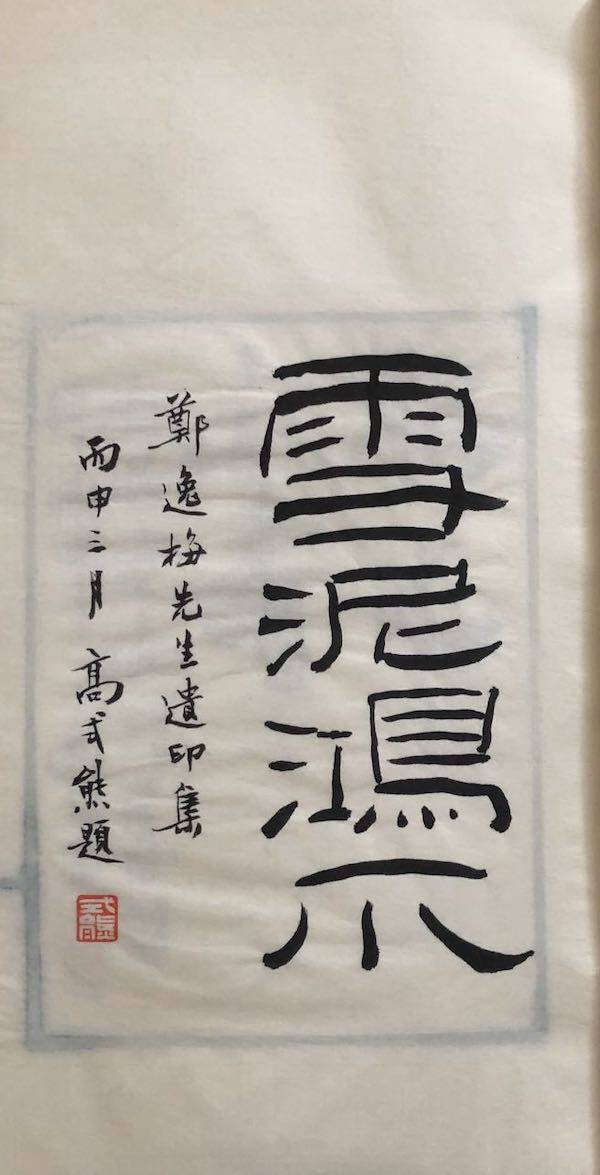 雪泥鴻爪
鄭逸梅先生遺印集
丙申三月 高式熊題